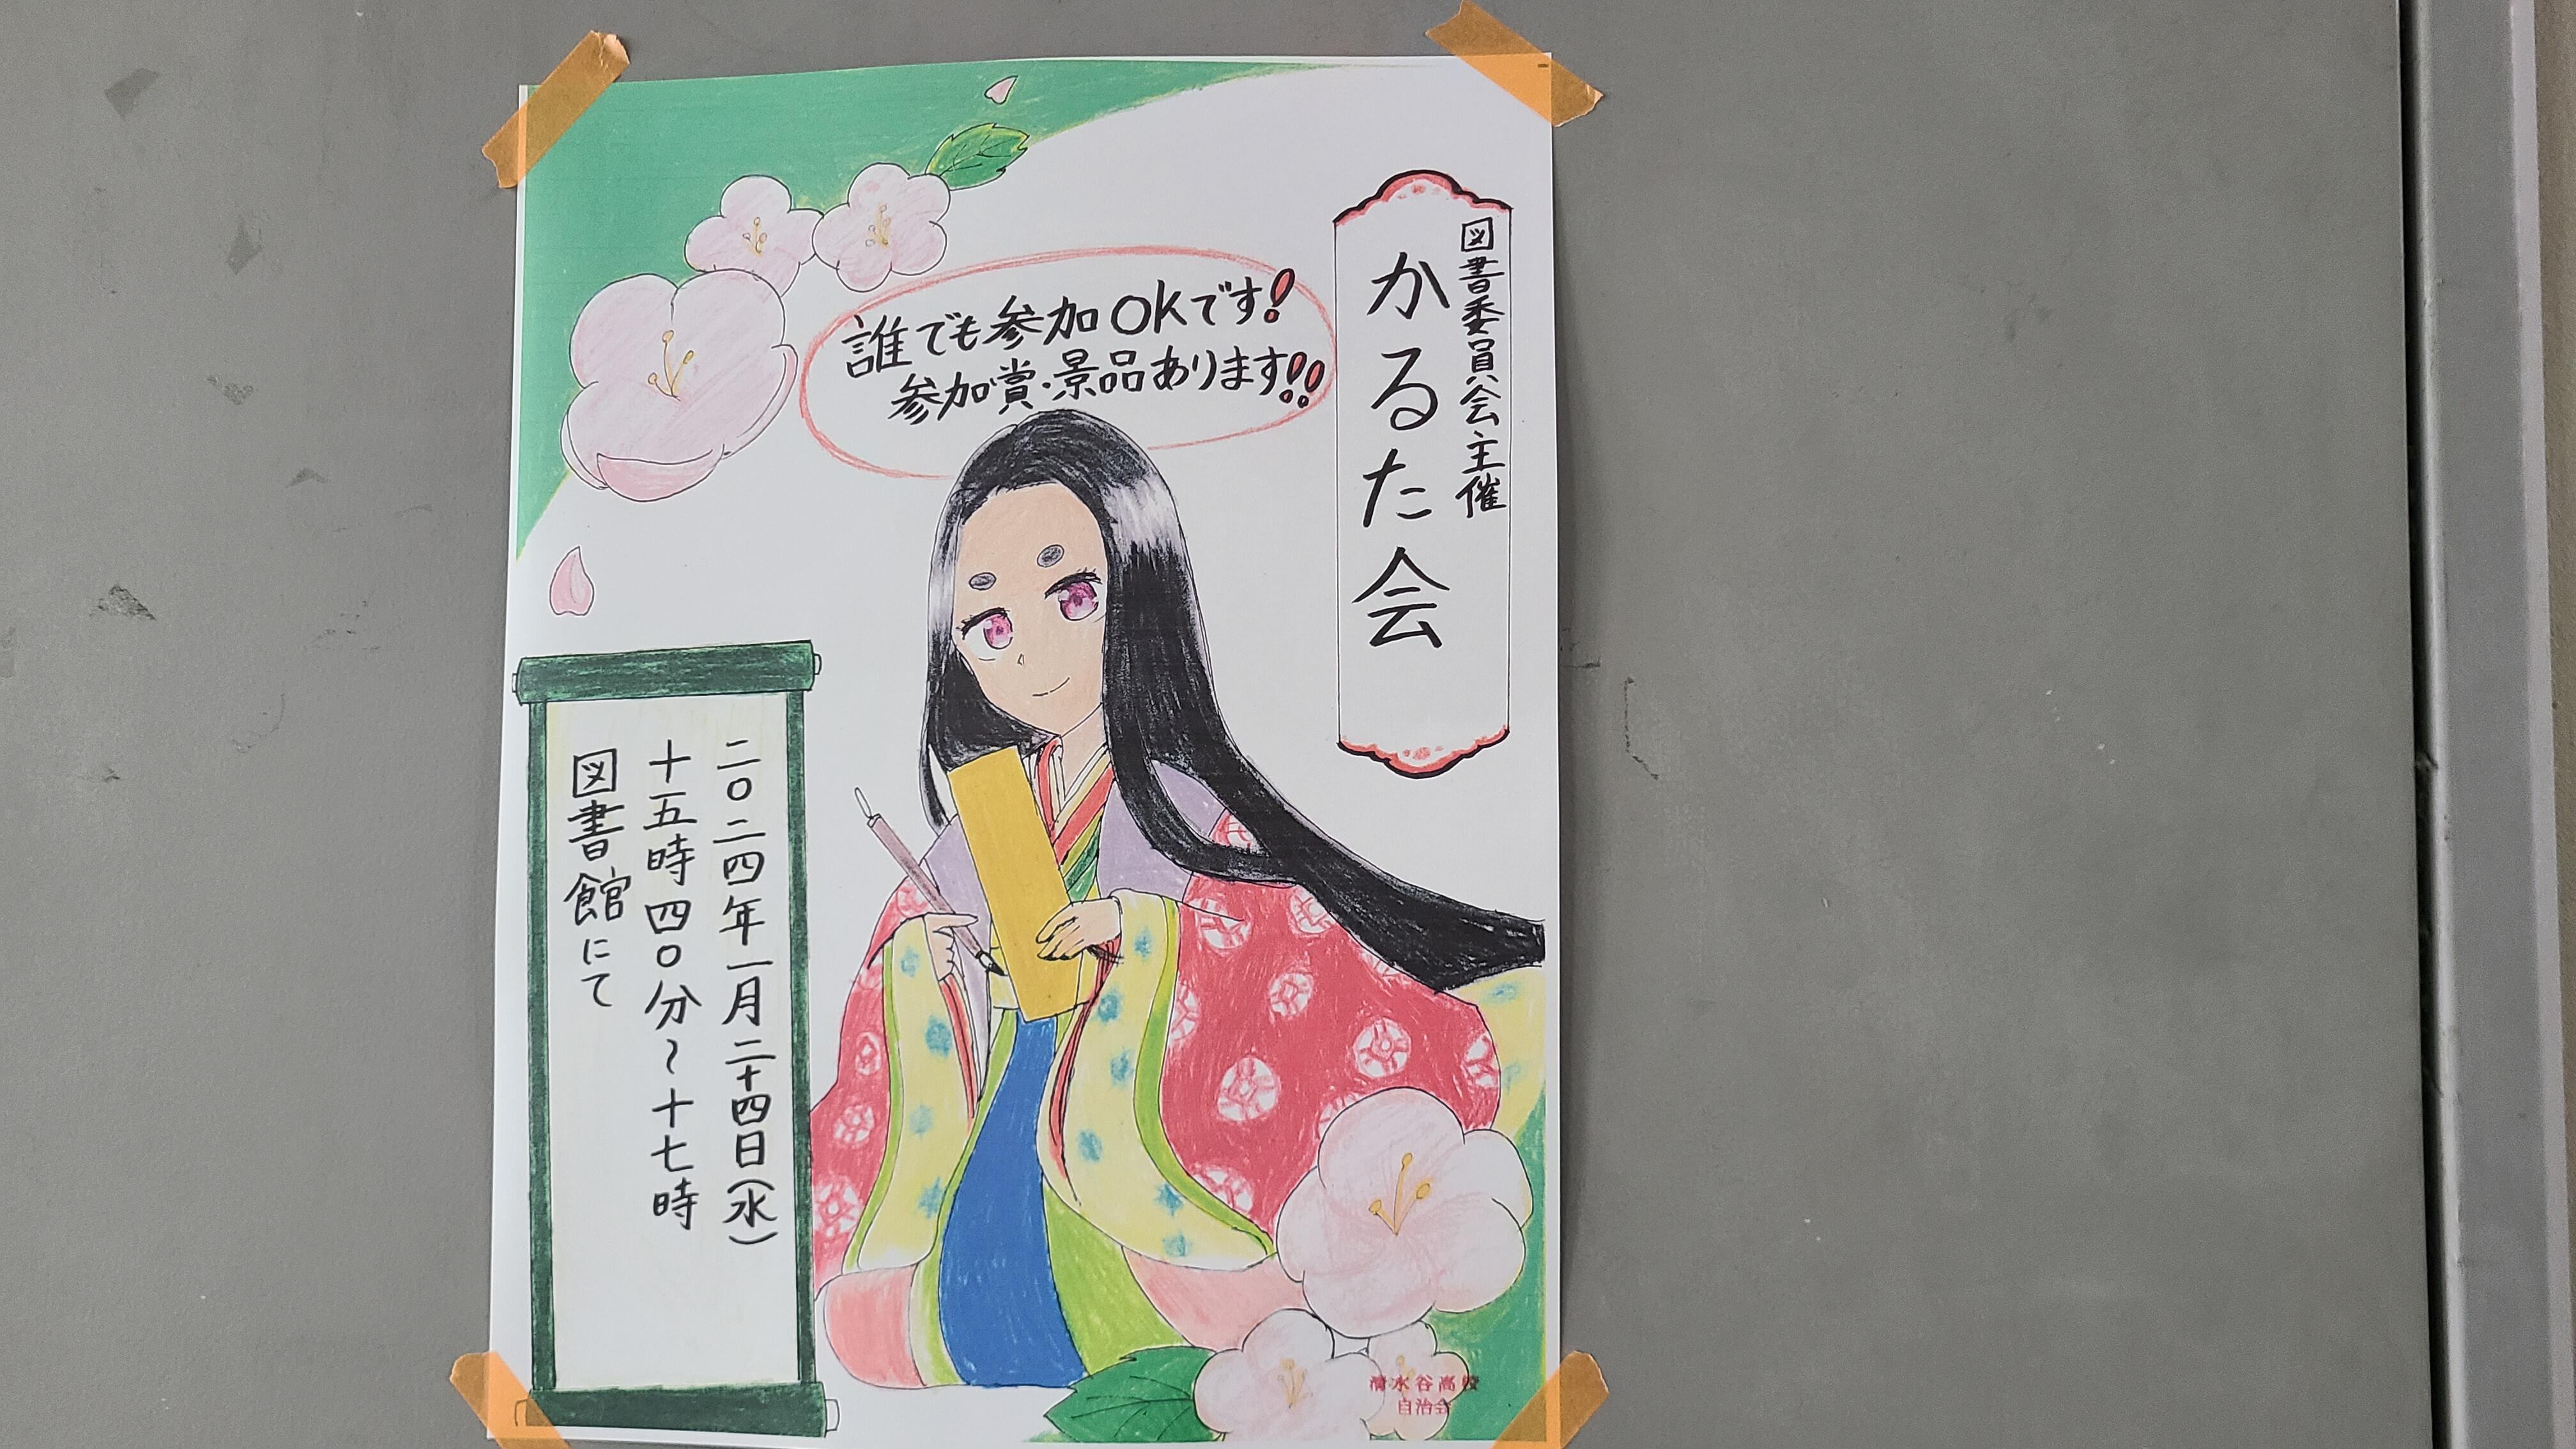 図書委員会主催
かるた会
誰でも参加OKです!
参加賞・景品あります!!
二〇二四年一月二十四日(水)
十五時四〇分~十七時
図書館にて
清水谷高校
自治会